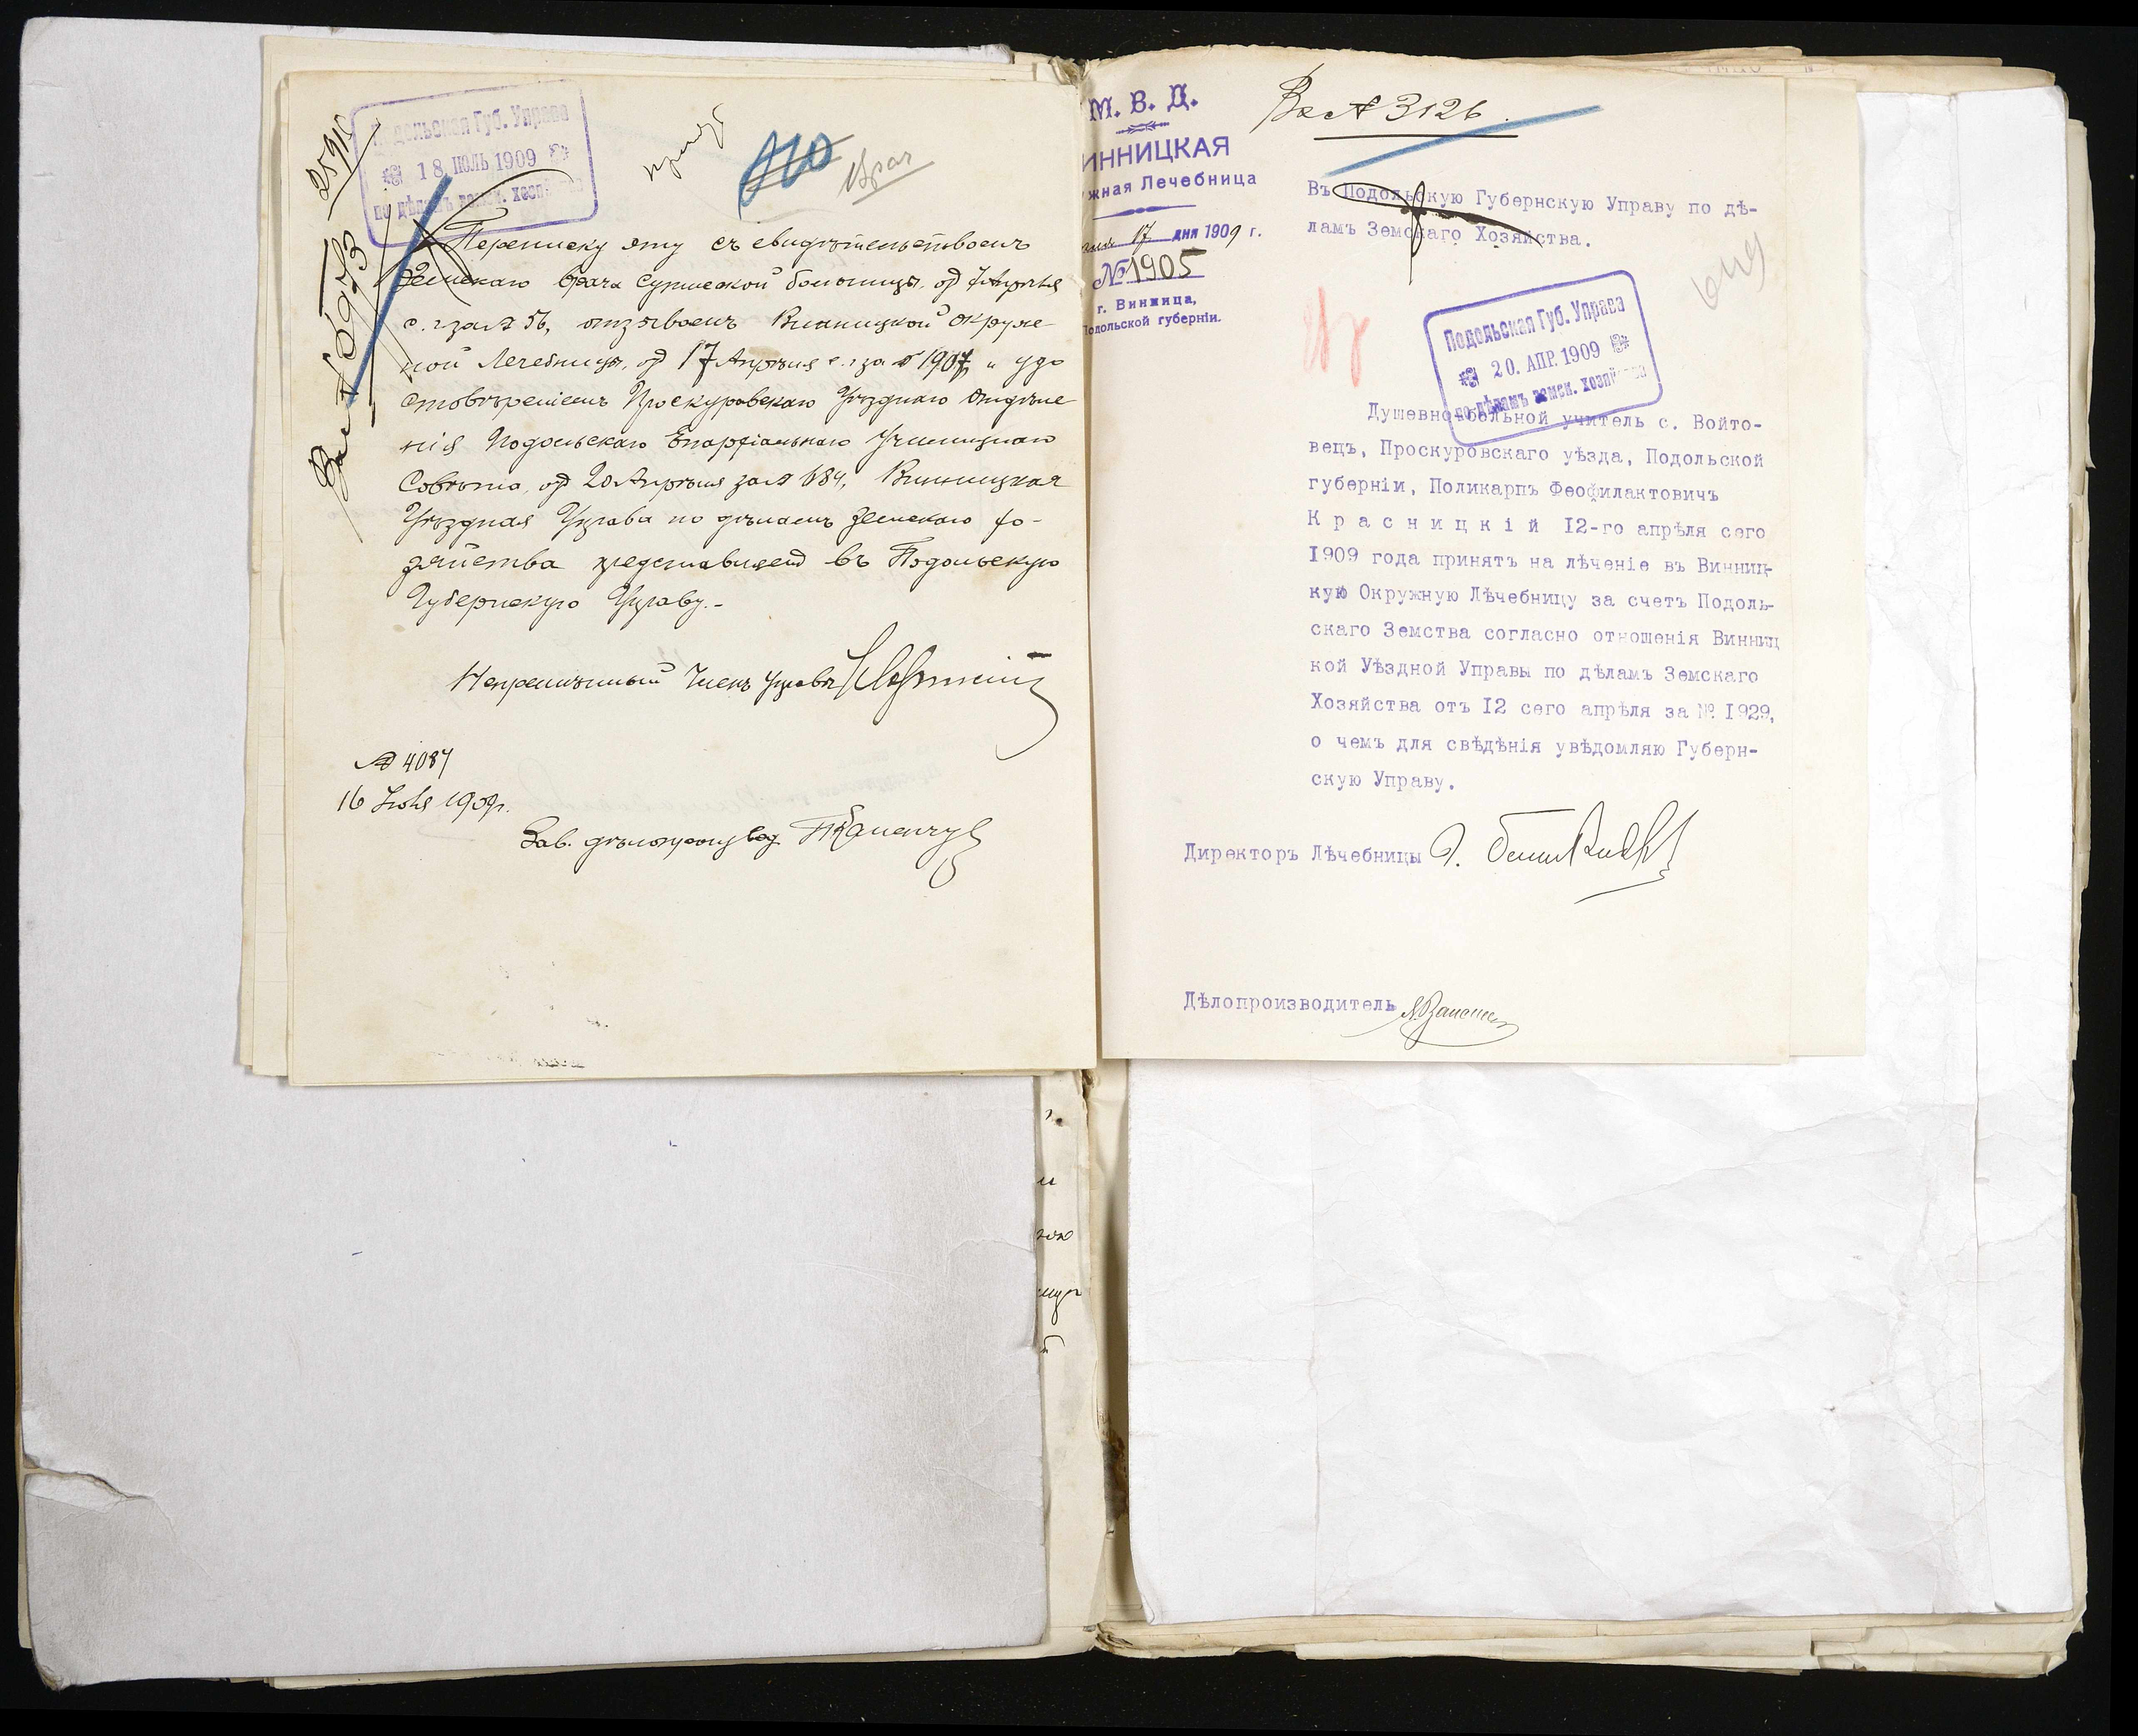 25910
Подольская Губ. Управа
18 ІЮЛЬ 1909
по дѣламъ земск. хозяйства
врач
Переписку эту съ свидѣтельствомъ
Земскаго врача больницы, от 7 Апрѣля
с. г. за № 56, отзывомъ Винницкой Окруж-
ной Лечебницы, от 17 Апрѣля с. г. за № 1907, и удо
стовѣреніемъ Проскуровскаго Уѣзднаго Отдѣле
нія Подольскаго Епархіальнаго Училищнаго
Совѣта, от 20 Апрѣля за № 684, Винницкая
Уѣздная Управа по дѣламъ Земскаго Хо-
зяйства представляет въ Подольскую
Губернскую Управу.-
Непремѣнный Членъ Управы
№ 4087
16 Іюля 1909 г.
Зав. дѣлопроизвод.
М. В. Д.
ИННИЦКАЯ
жная Лечебница
17 дня 1909 г.
№ 1905
г. Винница,
Подольской губерніи.
Вх № 3126.
Въ Подольскую Губернскую Управу по дѣ-
ламъ Земскаго Хозяйства.
Подольская Губ. Управа
20. АПР. 1909
по дѣламъ земск. хозяйства
Душевно-больной учитель с. Войто-
вецъ, Проскуровскаго уѣзда, Подольской
губерніи, Поликарпъ Феофилактовичъ
К р а с н и ц к і й 12-го апрѣля сего
1909 года принятъ на лѣченіе въ Винниц-
кую Окружную Лѣчебницу за счетъ Подоль-
скаго Земства согласно отношенія Винниц
кой Уѣздной Управы по дѣламъ Земскаго
Хозяйства отъ 12 сего апрѣля за № 1929,
о чемъ для свѣдѣнія увѣдомляю Губерн-
скую Управу.
Директоръ Лѣчебницы
Дѣлопроизводитель